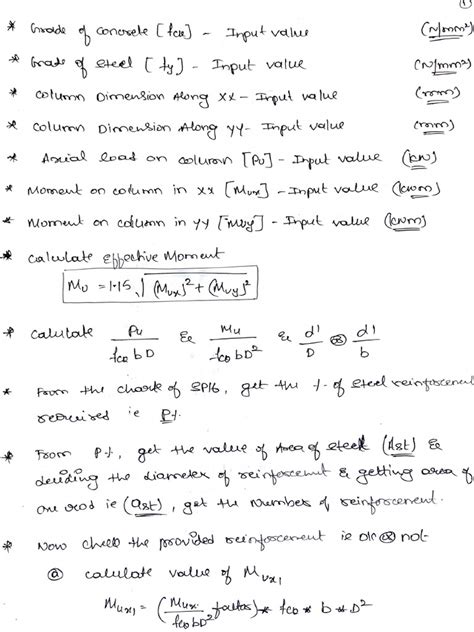 ①
* Grade of concrete [fck] - Input value (N/mm²)
* Grade of steel [fy] - Input value (N/mm²)
* column Dimension Along XX - Input value (mm)
* column Dimension Along YY - Input value (mm)
* Axial load on column [Pu] - Input value (kN)
* Moment on column in XX [Mux] - Input value (kNm)
* Moment on column in YY [Muy] - Input value (kNm)
* calculate effective Moment
Mu = 1.15 √(Mux)² + (Muy)²
* Calculate Pu / fck bD & Mu / fck bD² & d' / D or d' / b
* From the chart of SP16, get the % of steel reinforcement
required ie P%
* From P%, get the value of Area of steel (Ast) &
deciding the diameter of reinforcement & getting area of
one rod ie (ast), get the numbers of reinforcement.
* Now check the provided reinforcement is ok or not-
ⓐ calculate value of Mux1
Mux1 = (Mux / fck bD² factor) * fck * b * D²